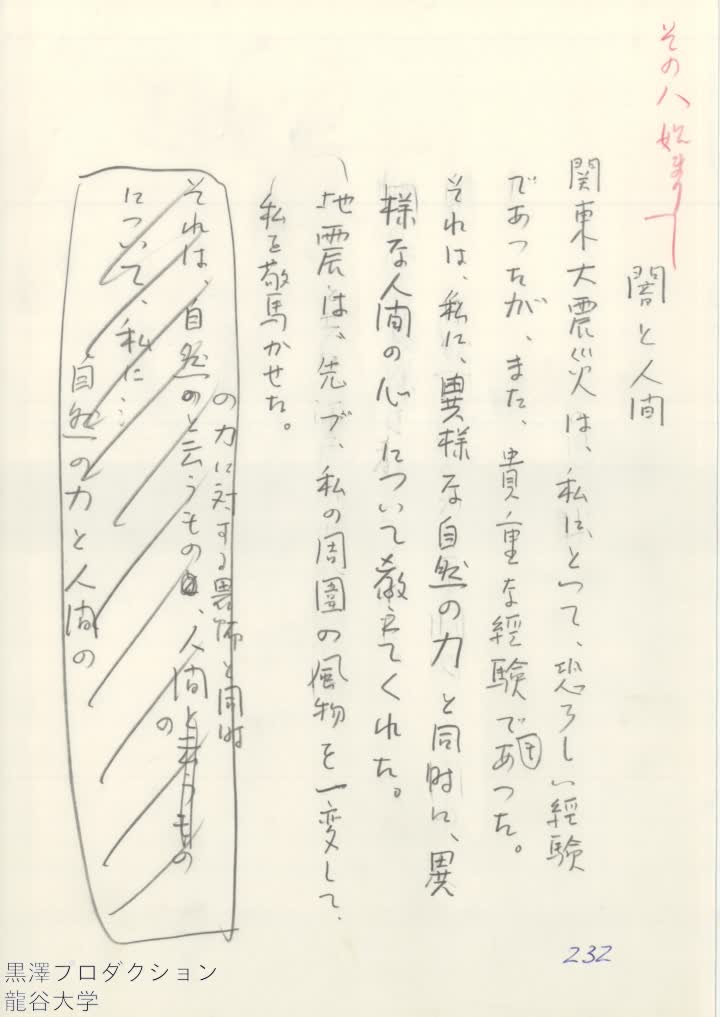 その八 始まり
闇と人間
関東大震災は、私にとって、恐ろしい経験
であつたが、また、貴重な経験でもあつた。
それは、私に、異様な自然の力と同時に、異
様な人間の心について教えてくれた。
地震は、先づ、私の周囲の風物を一変して、
私を驚かせた。
の力に対する畏怖と同時
それは、自然のと云うもの、人間と云うもの
の
について、私に…
自然の力と人間の
232
黒澤プロダクション
龍谷大学